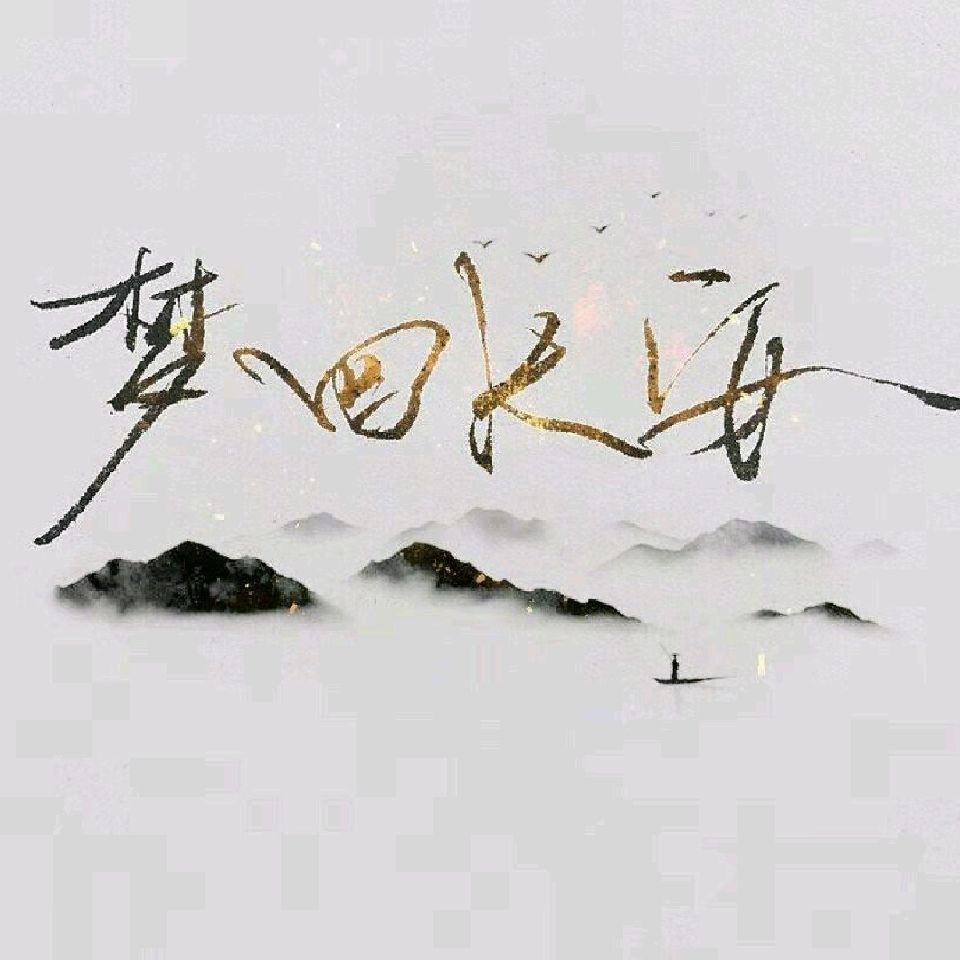 梦回长安